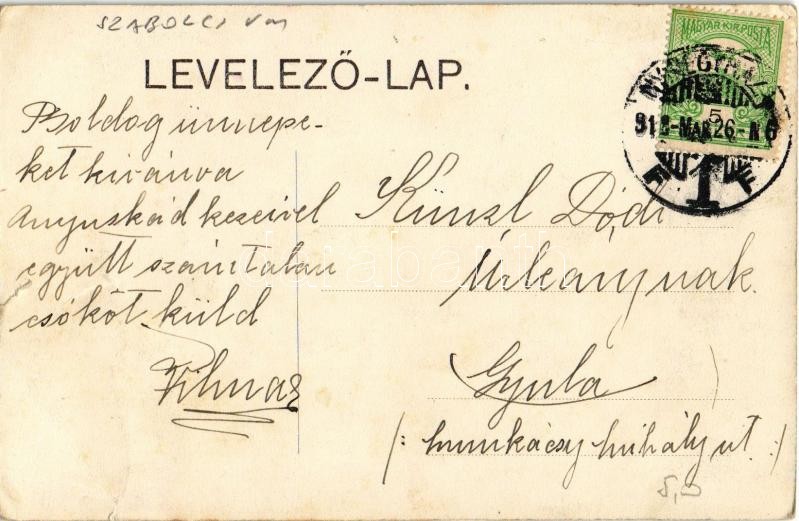 LEVELEZŐ-LAP.
MAGYAR KIR. POSTA
5
913-MAR26-N6
1
Boldog ünnepe-
ket kivánva
anyuskád kezeivel
együtt számtalan
csókot küld
Vilmos
Künzl Dódi
Úrleánynak
Gyula
(: munkácsy mihály ut. :)